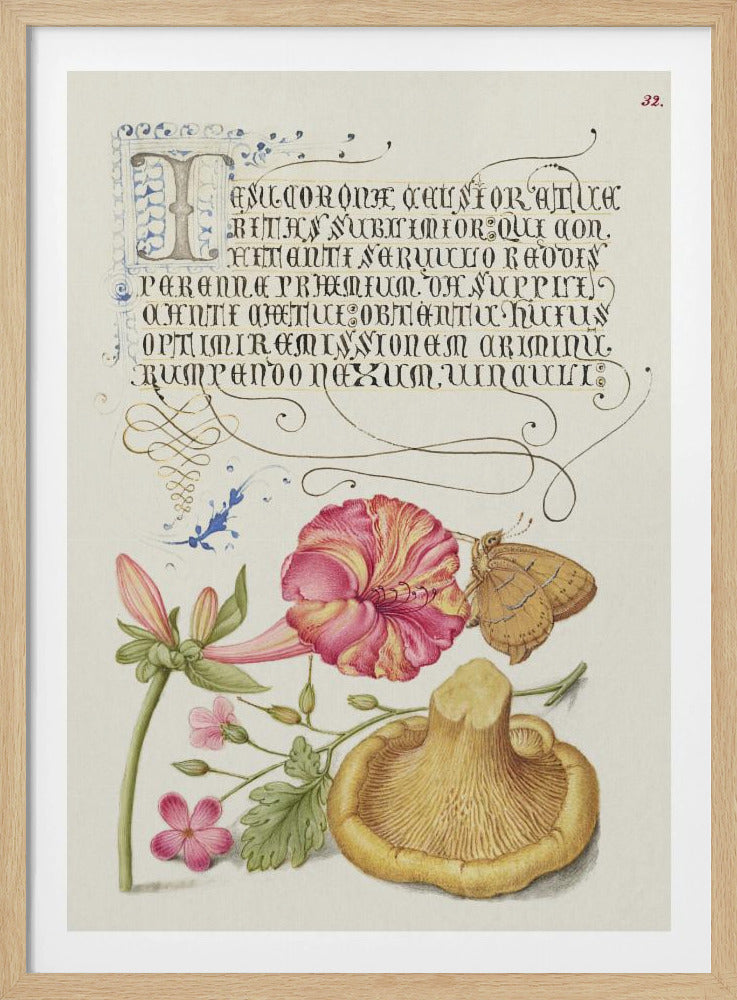 32.
IESU.CORONA, CELSIOR ET UE
RITAS SUBLIMIOR: QUI CON.
FITENTI SERUULO REDDIS
PERENNE PRÆMIUM. DA SUPPLI
CANTI CÆTUI: OBTENTU HUIUS
OPTIMI REMISSIONEM CRIMINU.
RUMPENDO NEXUM, UINCULI: